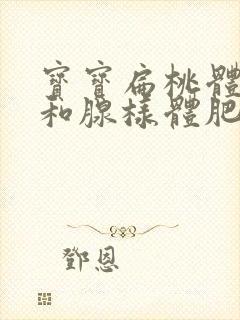 寶寶扁桃體
和腺樣體肥
鄧恩